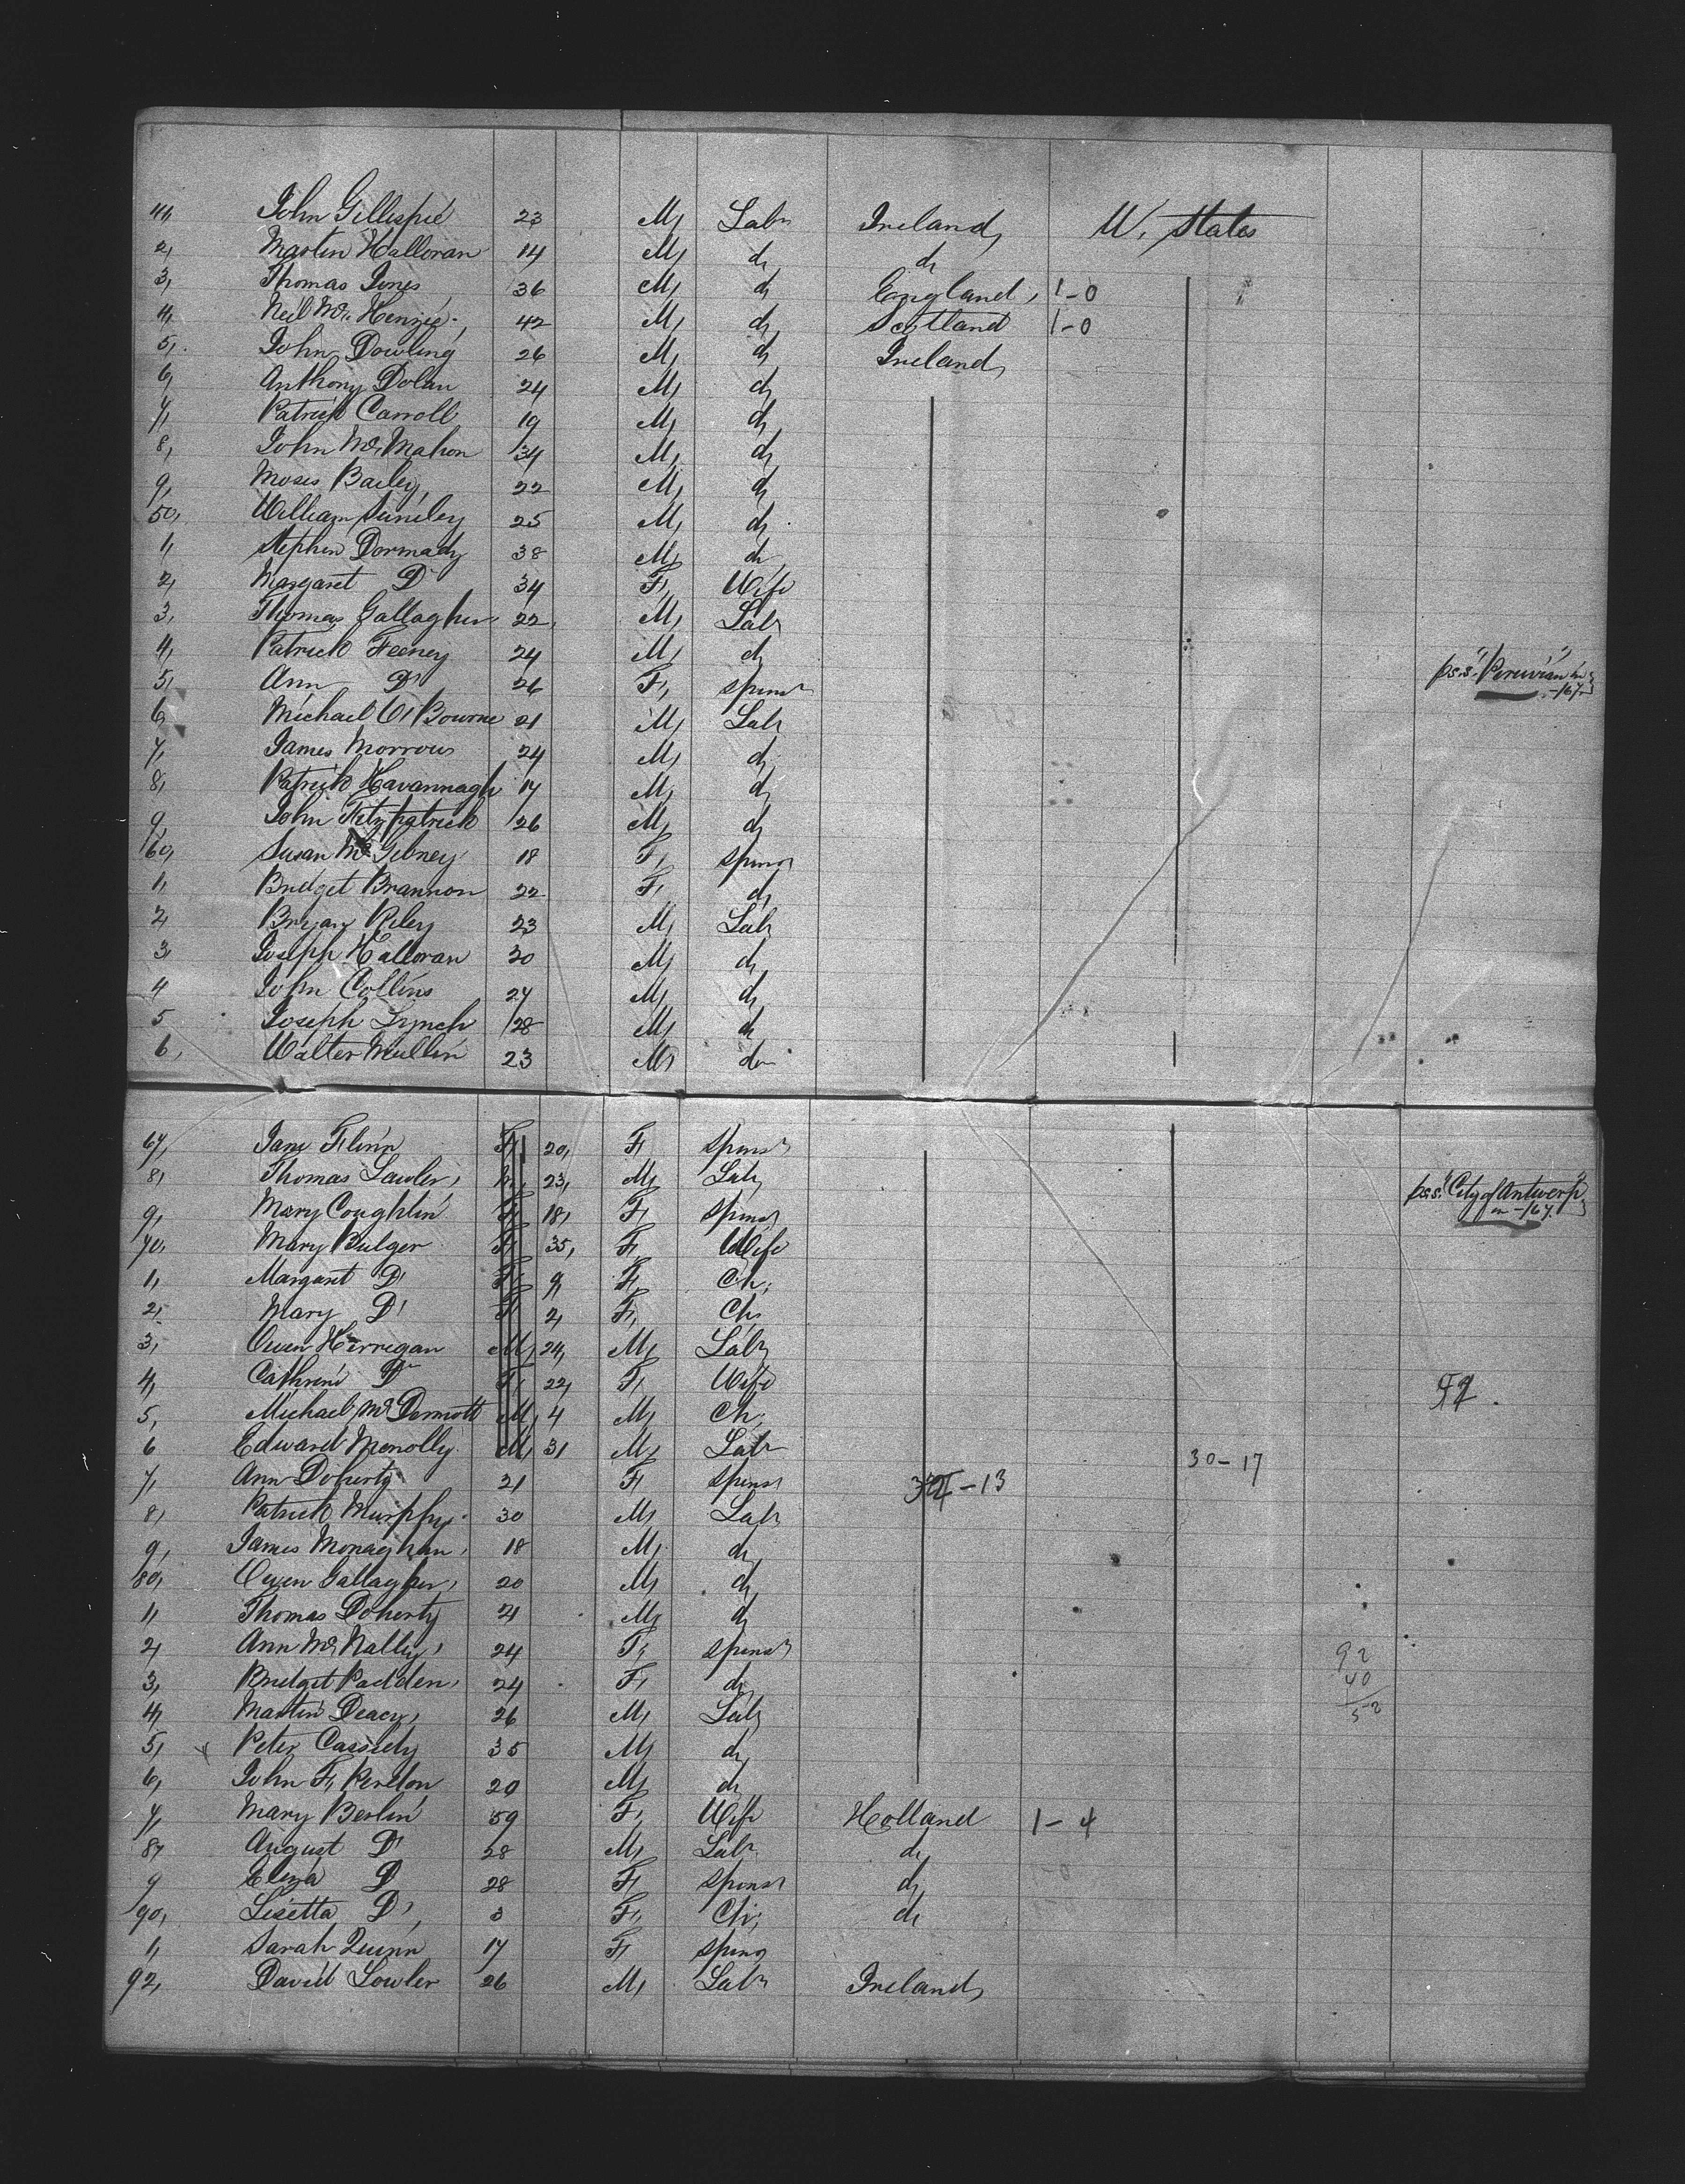 41, John Gillispie 23 M, Labr Ireland, U. States
2, Martin Halloran 14 M, do do
3, Thomas Jones 36 M, do England, 1-0
4, Neil Mc Kenzie 42 M, do Scotland 1-0
5, John Dowling 26 M, do Ireland,
6, Anthony Dolan 24 M, do
7, Patrick Carroll 19 M, do
8, John McMahon 34 M, do
9, Moses Bailey 22 M, do
50, William 25 M, do
1, Stephen Dormady 38 M, do
2, Margaret Do 34 F, Wife
3, Thomas Gallagher 22, M, Labr
4, Patrick Feeney 24 M, do pss "Peruvian" in -/67
5, Ann Do 26 F, Spinsr
6, Michael O'Bourne 21 M, Labr
7, James Morrow 24 M, do
8, Patrick Kavannagh 17 M, do
9, John Fitzpatrick 26 M, do
60, Susan McGibney 18 F, Spinsr
1, Bridget Brannon 22 F, do
2, Bryan Riley 23 M, Labr
3, Joseph Halloran 30 M, do
4 John Collins 27 M, do
5 Joseph Lynch 28 M, do
6, Walter Mullin 23 M, do
67, Jane Flinn F, 20, F, Spinsr
8, Thomas Lawler, M, 23, M, Labr pss. "City of Antwerp" in -/67.
9, Mary Coughlin F, 18, F, Spinsr
70, Mary Bulger F, 35, F, Wife
1, Margaret Do F, 9, F, Ch,
2, Mary Do F, 2 F, Ch,
3, Owen Kerrigan M, 24, M, Labr
4, Cathrine Do F, 22, F, Wife
5, Michael McDermott M, 4 M, Ch,
6 Edward Menolly M, 31 M, Labr 30-17
7, Ann Doherty 21 F, Spinsr -13
8, Patrick Murphy 30 M, Labr
9, James Monaghan, 18 M, do
80, Owen Gallagher, 20 M, do
1, Thomas Doherty 21 M, do
2, Ann McNally, 24 F, Spinsr 92
3, Bridget Padden, 24 F, do 40
4, Martin Deacy, 26 M, Labr 52
5, x Peter Cassidy 35 M, do
6, John F, 20 M, do
7, Mary Berlin 59 F, Wife Holland 1-4
87 August Do 28 M, Labr do
9 Eliza Do 28 F, Spinsr do
90, Lisetta Do, 3 F, Ch, do
1, Sarah Quinn 17 F, Spinsr
92, David Lowler 26 M, Labr Ireland,